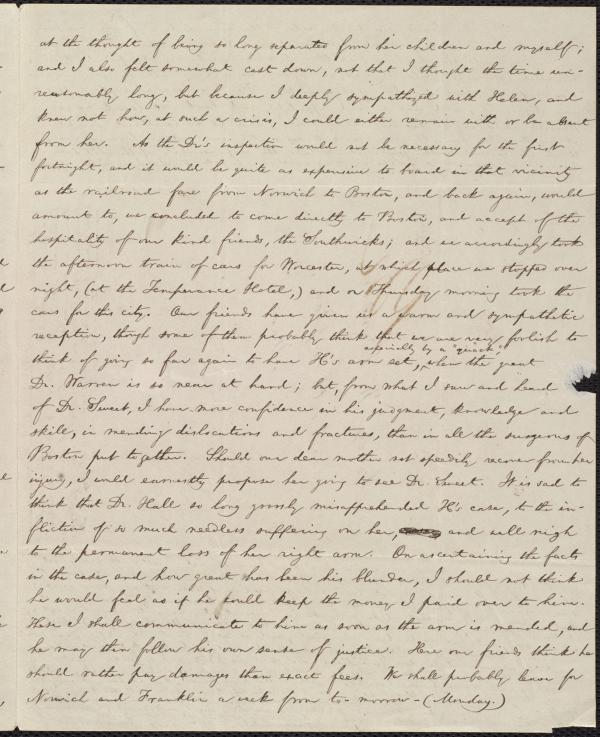 at the thought of being so long separated from her children and myself;
and I also felt somewhat cast down, not that I thought the time un-
reasonably long, but because I deeply sympathized with Helen, and
knew not how, at such a crisis, I could either remain with or be absent
from her. As the Dr's inspection would not be necessary for the first
fortnight, and it would be quite as expensive to board in that vicinity
as the railroad fare from Norwich to Boston, and back again, would
amount to, we concluded to come directly to Boston, and accept of the
hospitality of our kind friends, the Southwicks; and we accordingly took
the afternoon train of cars for Worcester, at which place we stopped over
night, (at the Temperance Hotel,) and on Thursday morning took the
cars for this city. Our friends have given us a warm and sympathetic
reception, though some of them probably think that we are very foolish to
especially by a "quack,"
think of going so far again to have H's arm set, when the great
Dr. Warren is so near at hand; but, from what I saw and heard
of Dr. Sweet, I have more confidence in his judgment, knowledge and
skill, in mending dislocations and fractures, than in all the surgeons of
Boston put together. Should our dear mother not speedily recover from her
injury, I would earnestly propose her going to see Dr. Sweet. It is sad to
think that Dr. Hall so long grossly misapprehended H's case, to the in-
fliction of so much needless suffering on her, and well nigh
to the permanent loss of her right arm. On ascertaining the facts
in the case, and how great has been his blunder, I should not think
he would feel as if he could keep the money I paid over to him.
These I shall communicate to him as soon as the arm is mended, and
he may then follow his own sense of justice. Here our friends think he
should rather pay damages than exact fees. We shall probably leave for
Norwich and Franklin a week from to-morrow - (Monday.)